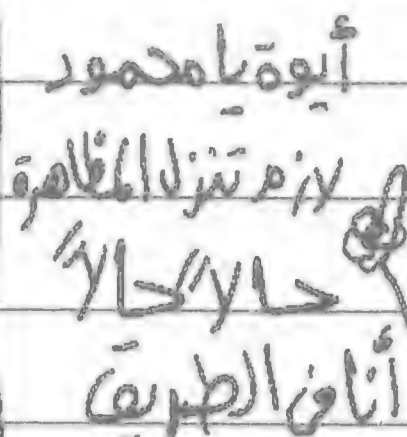 أيوة يا محمود
لازم تنزل القاهرة
حالا حالاً
أنا في الطريق